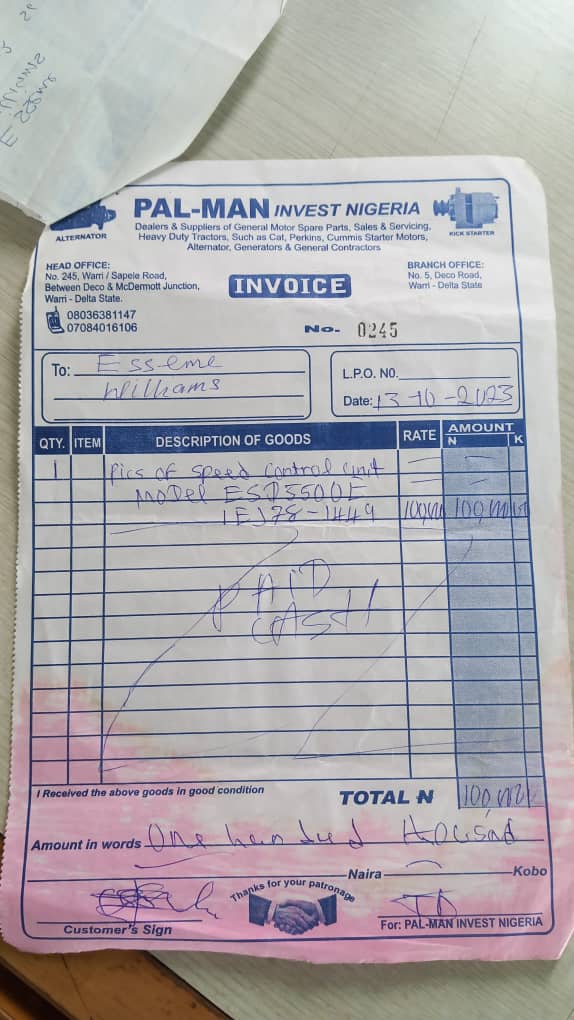 PAL-MAN INVEST NIGERIA
Dealers & Suppliers of General Motor Spare Parts, Sales & Servicing,
Heavy Duty Tractors, Such as Cat, Perkins, Cummis Starter Motors,
Alternator, Generators & General Contractors
ALTERNATOR
KICK STARTER
HEAD OFFICE:
No. 245, Warri / Sapele Road,
Between Deco & McDermott Junction,
Warri - Delta State.
08036381147
07084016106
INVOICE
BRANCH OFFICE:
No. 5, Deco Road,
Warri - Delta State
No. 0245
To: Esseme
Williams
L.P.O. NO.
Date: 13-10-2023
QTY. ITEM DESCRIPTION OF GOODS RATE AMOUNT
N K
1 Pics of Speed Control Unit
MODEL ESD5500E
100,000 100,000
PAID
CASH
I Received the above goods in good condition
TOTAL N 100,000
Amount in words One hundred thousand
Naira Kobo
Thanks for your patronage
Customer's Sign
For: PAL-MAN INVEST NIGERIA